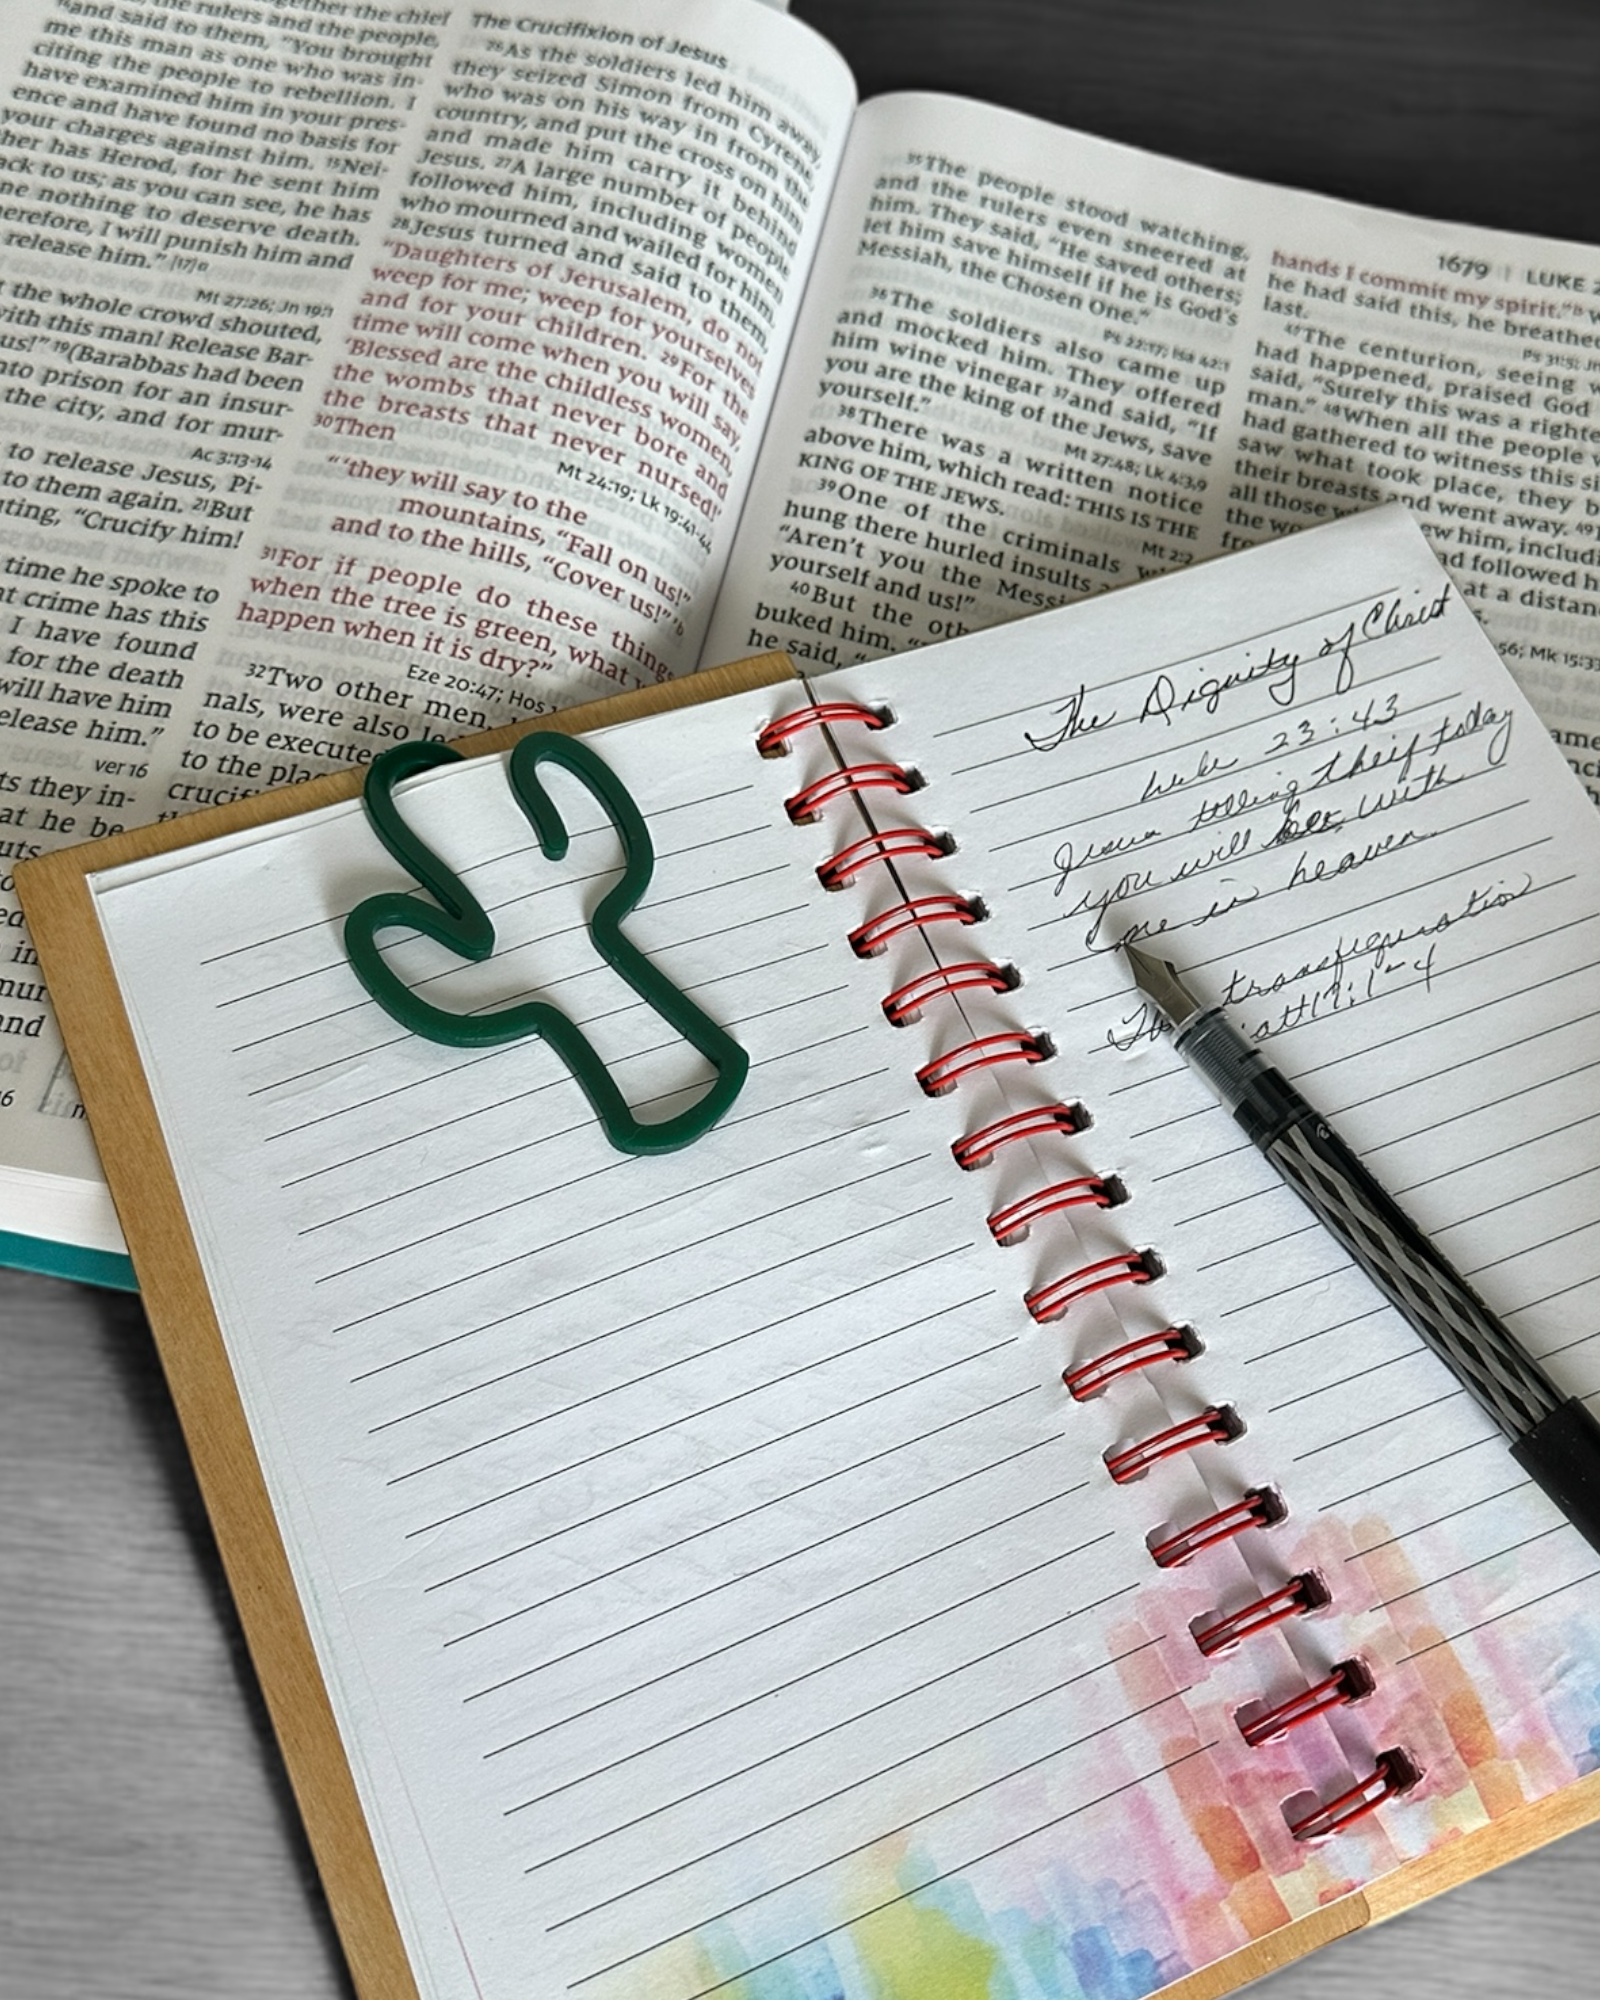 and said to them, “You brought
me this man as one who was in-
citing the people to rebellion. I
have examined him in your pres-
ence and have found no basis for
your charges against him. ¹⁵Nei-
her has Herod, for he sent him
ack to us; as you can see, he has
ne nothing to deserve death.
erefore, I will punish him and
release him.” [17] a
Mt 27:26; Jn 19:1
the whole crowd shouted,
with this man! Release Bar-
us!” ¹⁹(Barabbas had been
nto prison for an insur-
the city, and for mur-
Ac 3:13-14
to release Jesus, Pi-
to them again. ²¹But
uting, “Crucify him!
time he spoke to
at crime has this
I have found
for the death
will have him
elease him.”
ver 16
ts they in-
at he be
uts
in
mur
and
The Crucifixion of Jesus
²⁶As the soldiers led him away,
they seized Simon from Cyrene,
who was on his way in from the
country, and put the cross on him
and made him carry it behind
Jesus. ²⁷A large number of people
followed him, including women
who mourned and wailed for him.
²⁸Jesus turned and said to them,
“Daughters of Jerusalem, do not
weep for me; weep for yourselves
and for your children. ²⁹For the
time will come when you will say,
‘Blessed are the childless women,
the wombs that never bore and
the breasts that never nursed!’
³⁰Then
Mt 24:19; Lk 19:41-44
“ ‘they will say to the
mountains, “Fall on us!”
and to the hills, “Cover us!” ’ b
³¹For if people do these things
when the tree is green, what
happen when it is dry?”
Eze 20:47; Hos
³²Two other men,
nals, were also le
to be executed
to the pla
crucif
³⁵The people stood watching,
and the rulers even sneered at
him. They said, “He saved others;
let him save himself if he is God’s
Messiah, the Chosen One.”
Ps 22:17; Isa 42:1
³⁶The soldiers also came up
and mocked him. They offered
him wine vinegar ³⁷and said, “If
you are the king of the Jews, save
yourself.”
Mt 27:48; Lk 4:3,9
³⁸There was a written notice
above him, which read: THIS IS THE
KING OF THE JEWS.
Mt 2:2
³⁹One of the criminals w
hung there hurled insults
“Aren’t you the Messi
yourself and us!”
⁴⁰But the oth
buked him. “
he said, “
1679 | LUKE 2
hands I commit my spirit.” b W
he had said this, he breathe
last.
Ps 31:5; Jn
⁴⁷The centurion, seeing w
had happened, praised God
said, “Surely this was a righte
man.” ⁴⁸When all the people w
had gathered to witness this si
saw what took place, they b
their breasts and went away. ⁴⁹
all those w ew him, includi
the wo d followed h
fro at a distan
56; Mk 15:33
The Dignity of Christ
Luke 23:43
Jesus telling theif today
you will be with
me in heaven.
The transfiguration
att 17:1-4